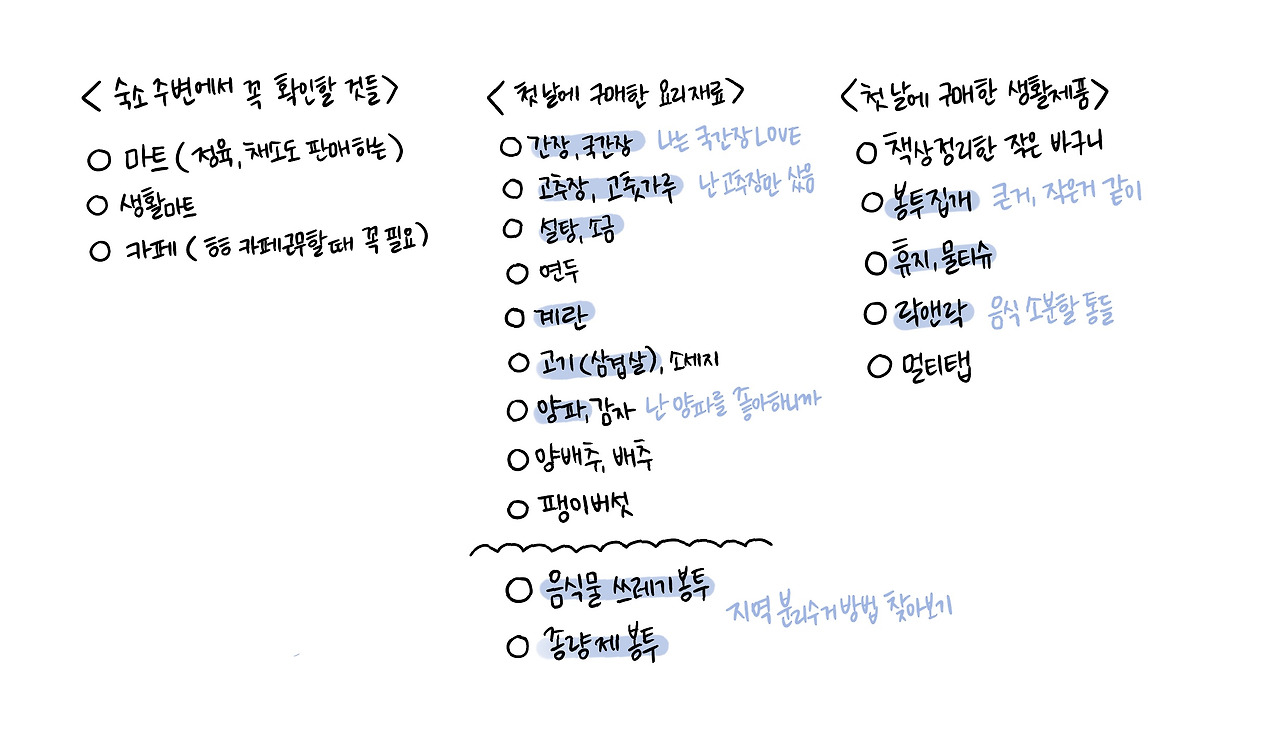 <숙소 주변에서 꼭 확인할 것들>
○ 마트 (정육, 채소도 판매하는)
○ 생활마트
○ 카페 (ㅎㅎ 카페근무할때 꼭 필요)
<첫날에 구매한 요리재료>
○ 간장, 국간장 나는 국간장 LOVE
○ 고추장, 고춧가루 난 고추장만 샀음
○ 설탕, 소금
○ 연두
○ 계란
○ 고기(삼겹살), 소세지
○ 양파, 감자 난 양파를 좋아하니까
○ 양배추, 배추
○ 팽이버섯
○ 음식물 쓰레기봉투
○ 종량제 봉투
지역 분리수거방법 찾아보기
<첫날에 구매한 생활제품>
○ 책상정리한 작은 바구니
○ 봉투집개 큰거, 작은거 같이
○ 휴지, 물티슈
○ 락앤락 음식 소분할 통들
○ 멀티탭